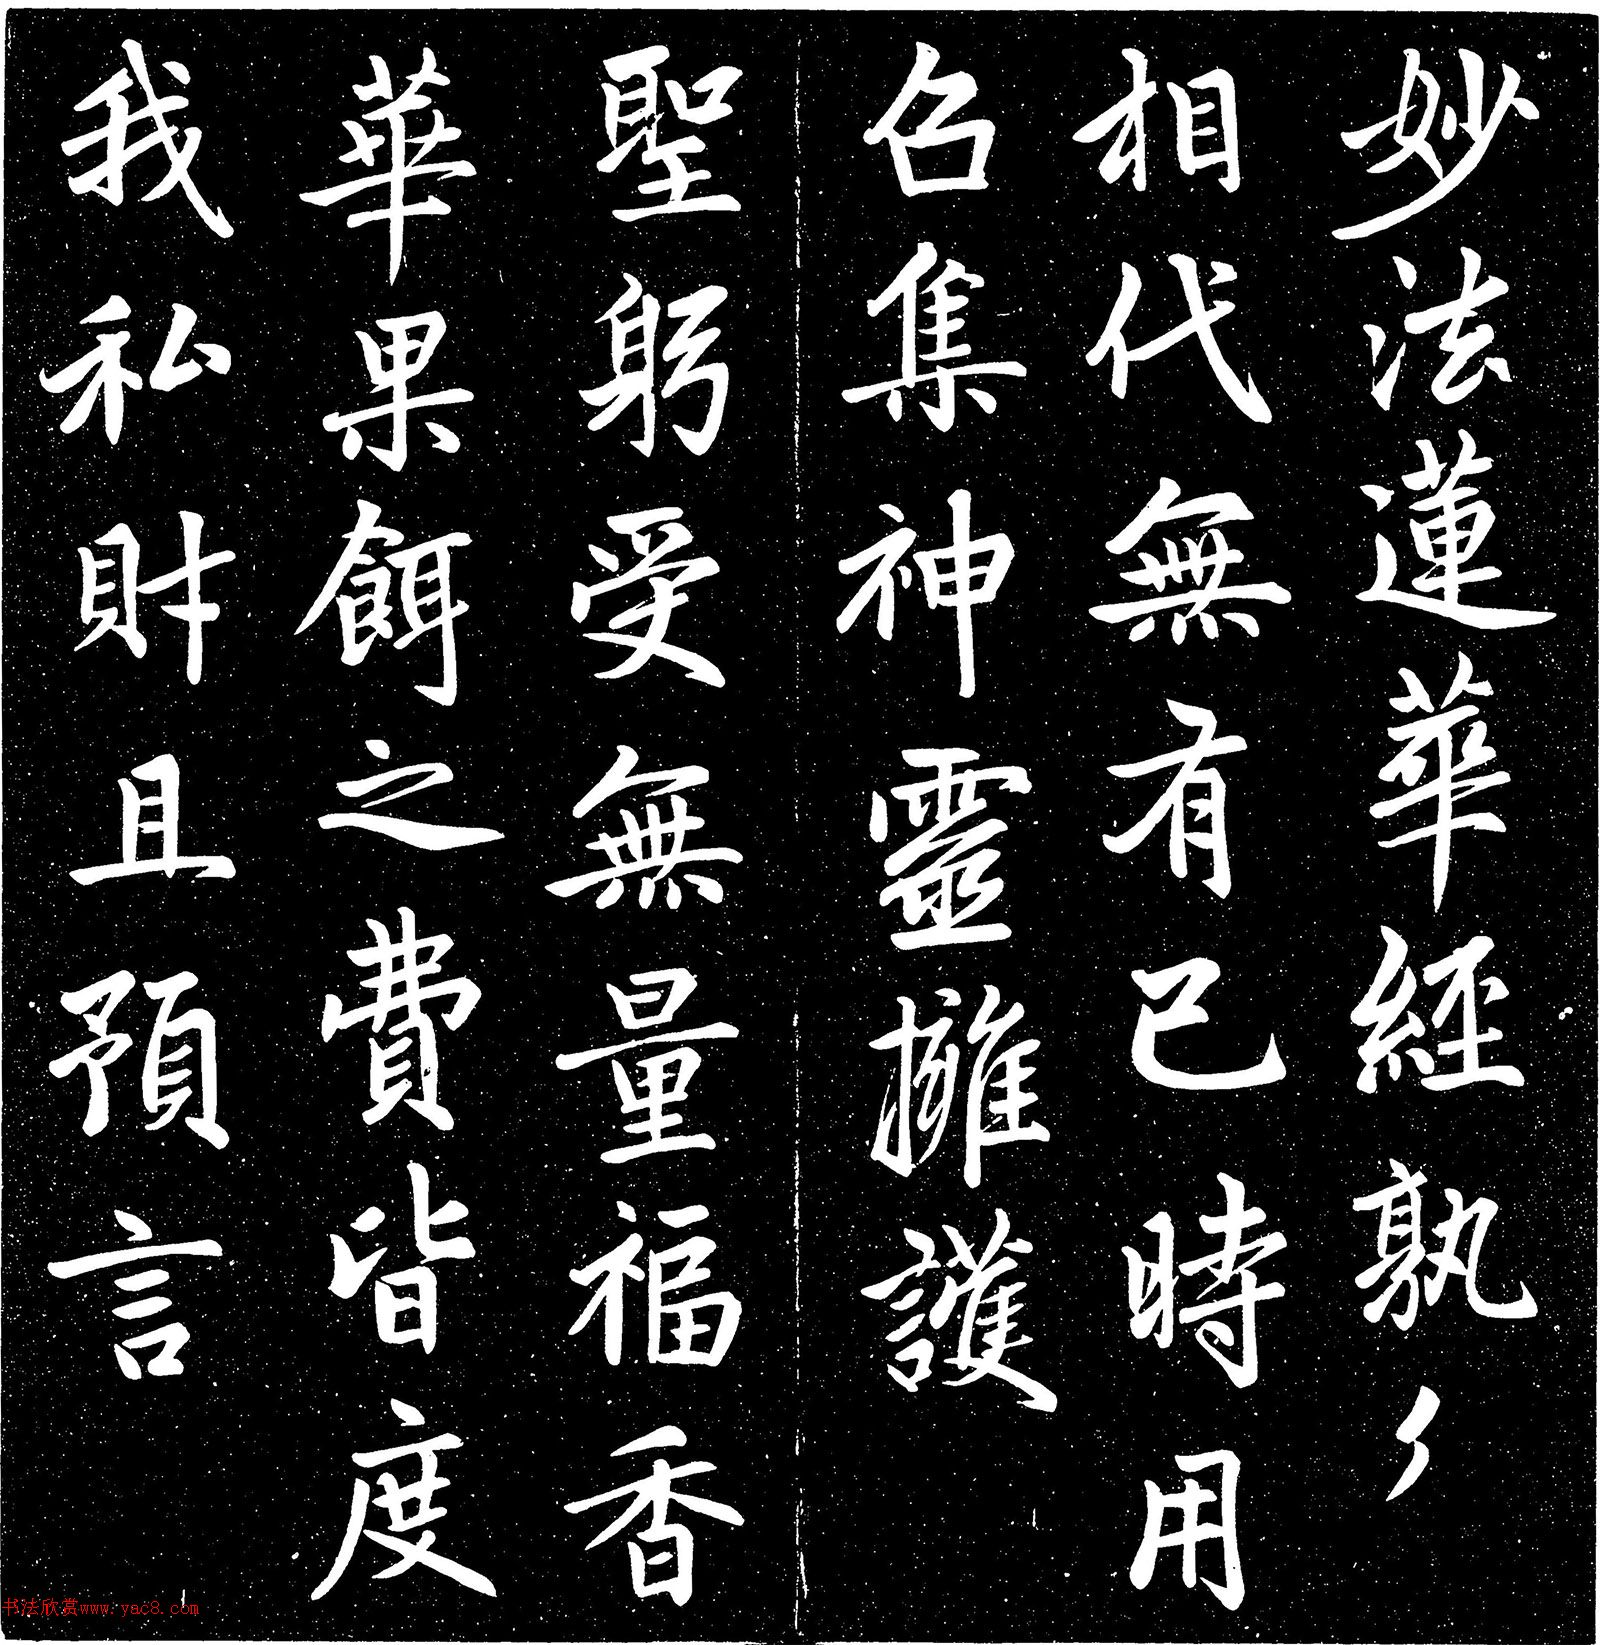 妙法蓮華經孰々
相代無有已時用
召集神靈擁護
聖躬受無量福香
華果餌之費皆度
我私財且預言
书法欣赏www.yac8.com